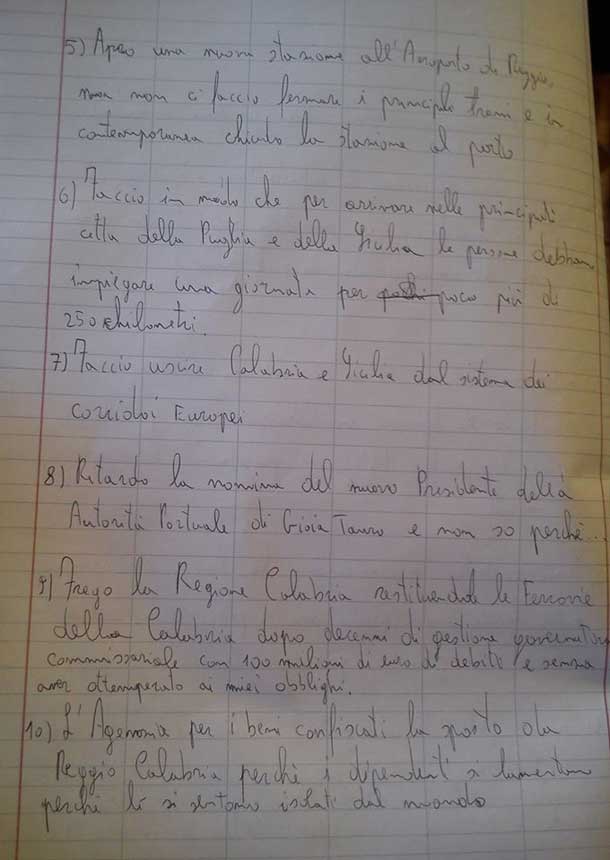 5) Apro una nuova stazione all'Aeroporto di Reggio,
ma non ci faccio fermare i principali treni e in
contemporanea chiudo la stazione al porto
6) Faccio in modo che per arrivare nelle principali
città della Puglia e della Sicilia le persone debbano
impiegare una giornata per poco più di
250 chilometri.
7) Faccio uscire Calabria e Sicilia dal sistema dei
corridoi Europei
8) Ritardo la nomina del nuovo Presidente della
Autorità Portuale di Gioia Tauro e non so perchè...
9) Frego la Regione Calabria restituendole le Ferrovie
della Calabria dopo decenni di gestione governativa
commissariale con 100 milioni di euro di debiti e senza
aver ottemperato ai miei obblighi.
10) L'Agenzia per i beni confiscati la sposto da
Reggio Calabria perchè i dipendenti si lamentano
perchè lì si sentono isolati dal mondo